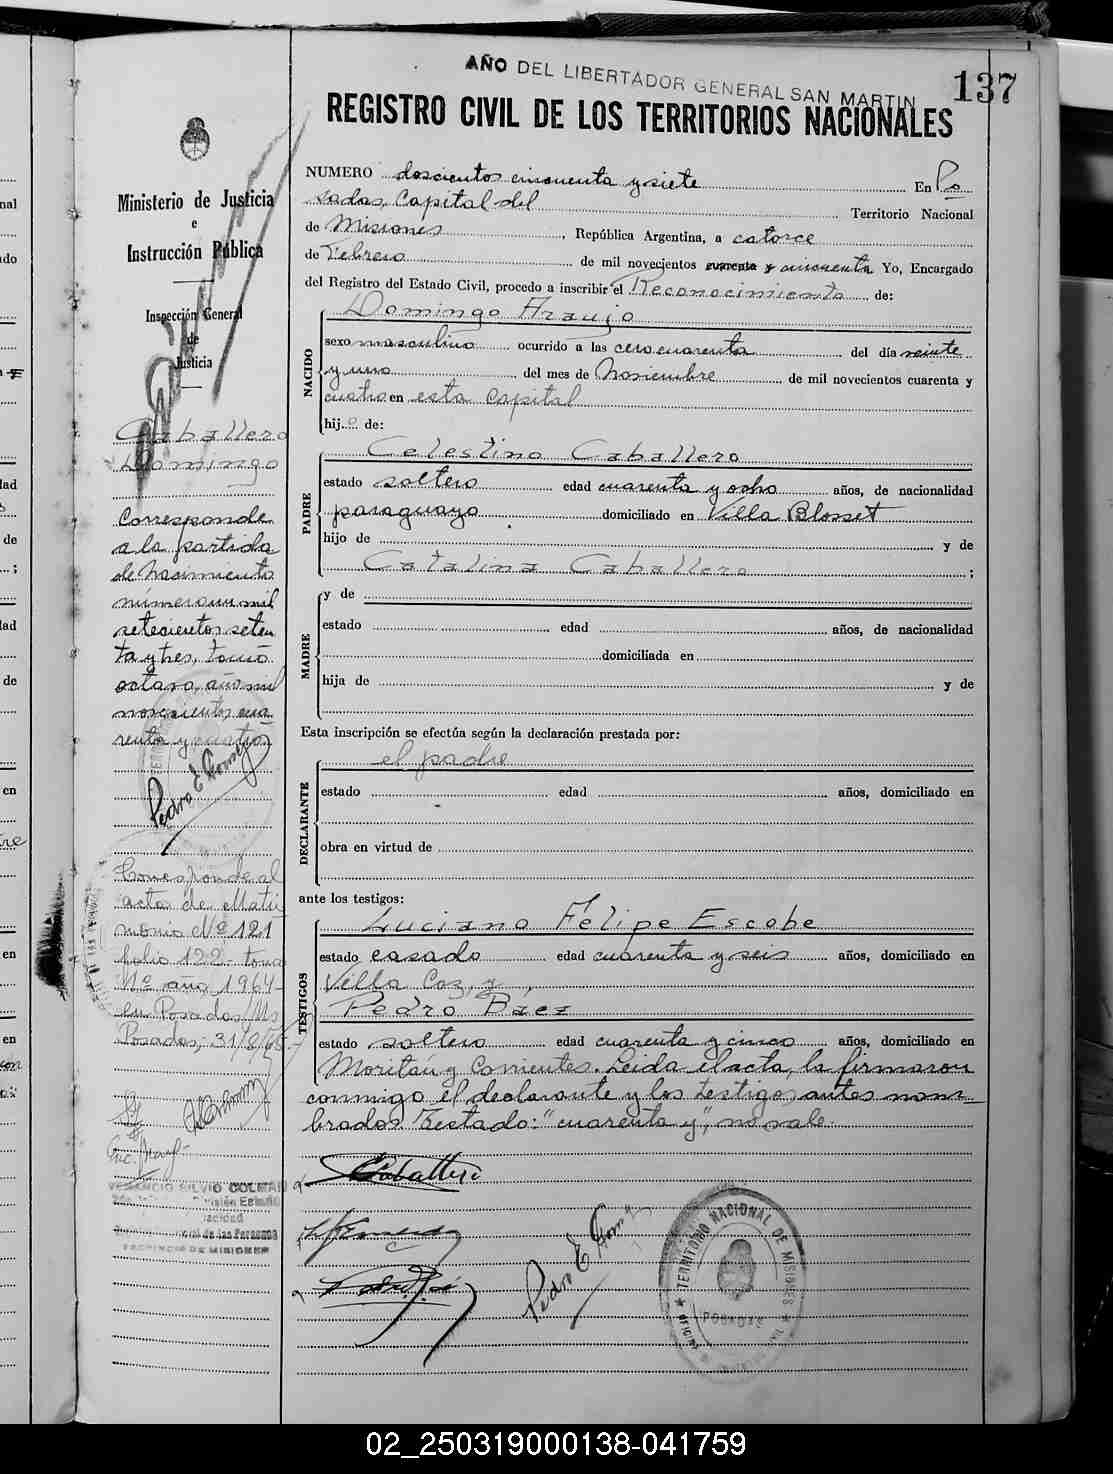 AÑO DEL LIBERTADOR GENERAL SAN MARTIN
137
REGISTRO CIVIL DE LOS TERRITORIOS NACIONALES
Ministerio de Justicia
e
Instrucción Pública
Inspección General
de
Justicia
Caballero
Domingo
Corresponde
a la partida
de Nacimiento
número un mil
setecientos seten
ta y tres, tomo
octavo, año mil
novecientos cua
renta y cuatro
Pedro E Gomez
Corresponde al
acta de Matri
monio Nº 121
folio 122 - tomo
Nº año 1964-
en Posadas, Ms
Posadas, 31/8/65.-
VENANCIO SILVIO COLMAN
PROVINCIA DE MISIONES
NUMERO doscientos cincuenta y siete En Po
sadas, Capital del Territorio Nacional
de Misiones, República Argentina, a catorce
de Febrero de mil novecientos cuarenta y cincuenta Yo, Encargado
del Registro del Estado Civil, procedo a inscribir el Reconocimiento de:
NACIDO
Domingo Araujo
sexo masculino ocurrido a las cero cuarenta del día veinte
y uno del mes de Noviembre de mil novecientos cuarenta y
cuatro en esta Capital
hijo de:
PADRE
Celestino Caballero
estado soltero edad cuarenta y ocho años, de nacionalidad
paraguayo domiciliado en Villa Blosset
hijo de y de
Catalina Caballero ;
MADRE
y de
estado edad años, de nacionalidad
domiciliada en
hija de y de
Esta inscripción se efectúa según la declaración prestada por:
DECLARANTE
el padre
estado edad años, domiciliado en
obra en virtud de
ante los testigos:
TESTIGOS
Luciano Felipe Escobe
estado casado edad cuarenta y seis años, domiciliado en
Villa Coz, y,
Pedro Báez
estado soltero edad cuarenta y cinco años, domiciliado en
Moritán y Corrientes. Leida el acta, la firmaron
conmigo el declarante y los testigos antes nom-
brados Testado: "cuarenta y", no vale.
Caballero
Pedro E Gomez
TERRITORIO NACIONAL DE MISIONES
POSADAS
02_250319000138-041759